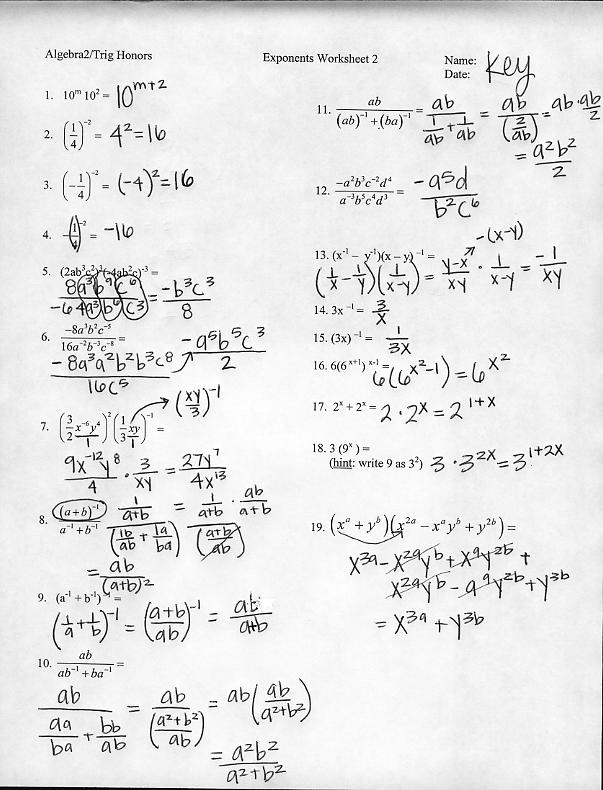 Algebra2/Trig Honors
Exponents Worksheet 2
Name: Key
Date:
1. 10^m 10² = 10^(m+2)
2. (1/4)^-2 = 4² = 16
3. (-1/4)^-2 = (-4)² = 16
4. -(1/4)^-2 = -16
5. (2ab³c²)³(-4ab²c)^-3 =
8a³b⁹c⁶ / -64a³b⁶c³ = -b³c³ / 8
6. -8a³b²c^-5 / 16a^-2b^-3c^-8 =
-8a³a²b²b³c⁸ / 16c⁵ → -a⁵b⁵c³ / 2
7. (3/2 x^-6y⁴)² (1/3 xy)^-1 = (xy/3)^-1
9x^-12y⁸ / 4 · 3/xy = 27y⁷ / 4x¹³
8. (a+b)^-1 / a^-1+b^-1 (1/a+b) / (1b/ab + 1a/ba) = 1/a+b · ab/a+b
(a+b/ab)
= ab / (a+b)²
9. (a^-1 + b^-1)^-1 =
(1/a + 1/b)^-1 = (a+b/ab)^-1 = ab / a+b
10. ab / ab^-1 + ba^-1 =
ab / (aa/ba + bb/ab) = ab / (a²+b²/ab) = ab(ab/a²+b²)
= a²b² / a²+b²
11. ab / (ab)^-1 + (ba)^-1 = ab / (1/ab + 1/ab) = ab / (2/ab) = ab · ab/2
= a²b² / 2
12. -a²b³c^-2d⁴ / a^-3b⁵c⁴d³ = -a⁵d / b²c⁶
13. (x^-1 - y^-1)(x - y)^-1 = -(x-y)
(1/x - 1/y)(1/x-y) = y-x/xy · 1/x-y = -1/xy
14. 3x^-1 = 3/x
15. (3x)^-1 = 1/3x
16. 6(6^(x+1))^(x-1) = 6(6^(x²-1)) = 6^(x²)
17. 2^x + 2^x = 2 · 2^x = 2^(1+x)
18. 3 (9^x) =
(hint: write 9 as 3²) 3 · 3^(2x) = 3^(1+2x)
19. (x^a + y^b)(x^(2a) - x^a y^b + y^(2b)) =
x^(3a) - x^(2a)y^b + x^a y^(2b) +
x^(2a)y^b - a^a y^(2b) + y^(3b)
= x^(3a) + y^(3b)